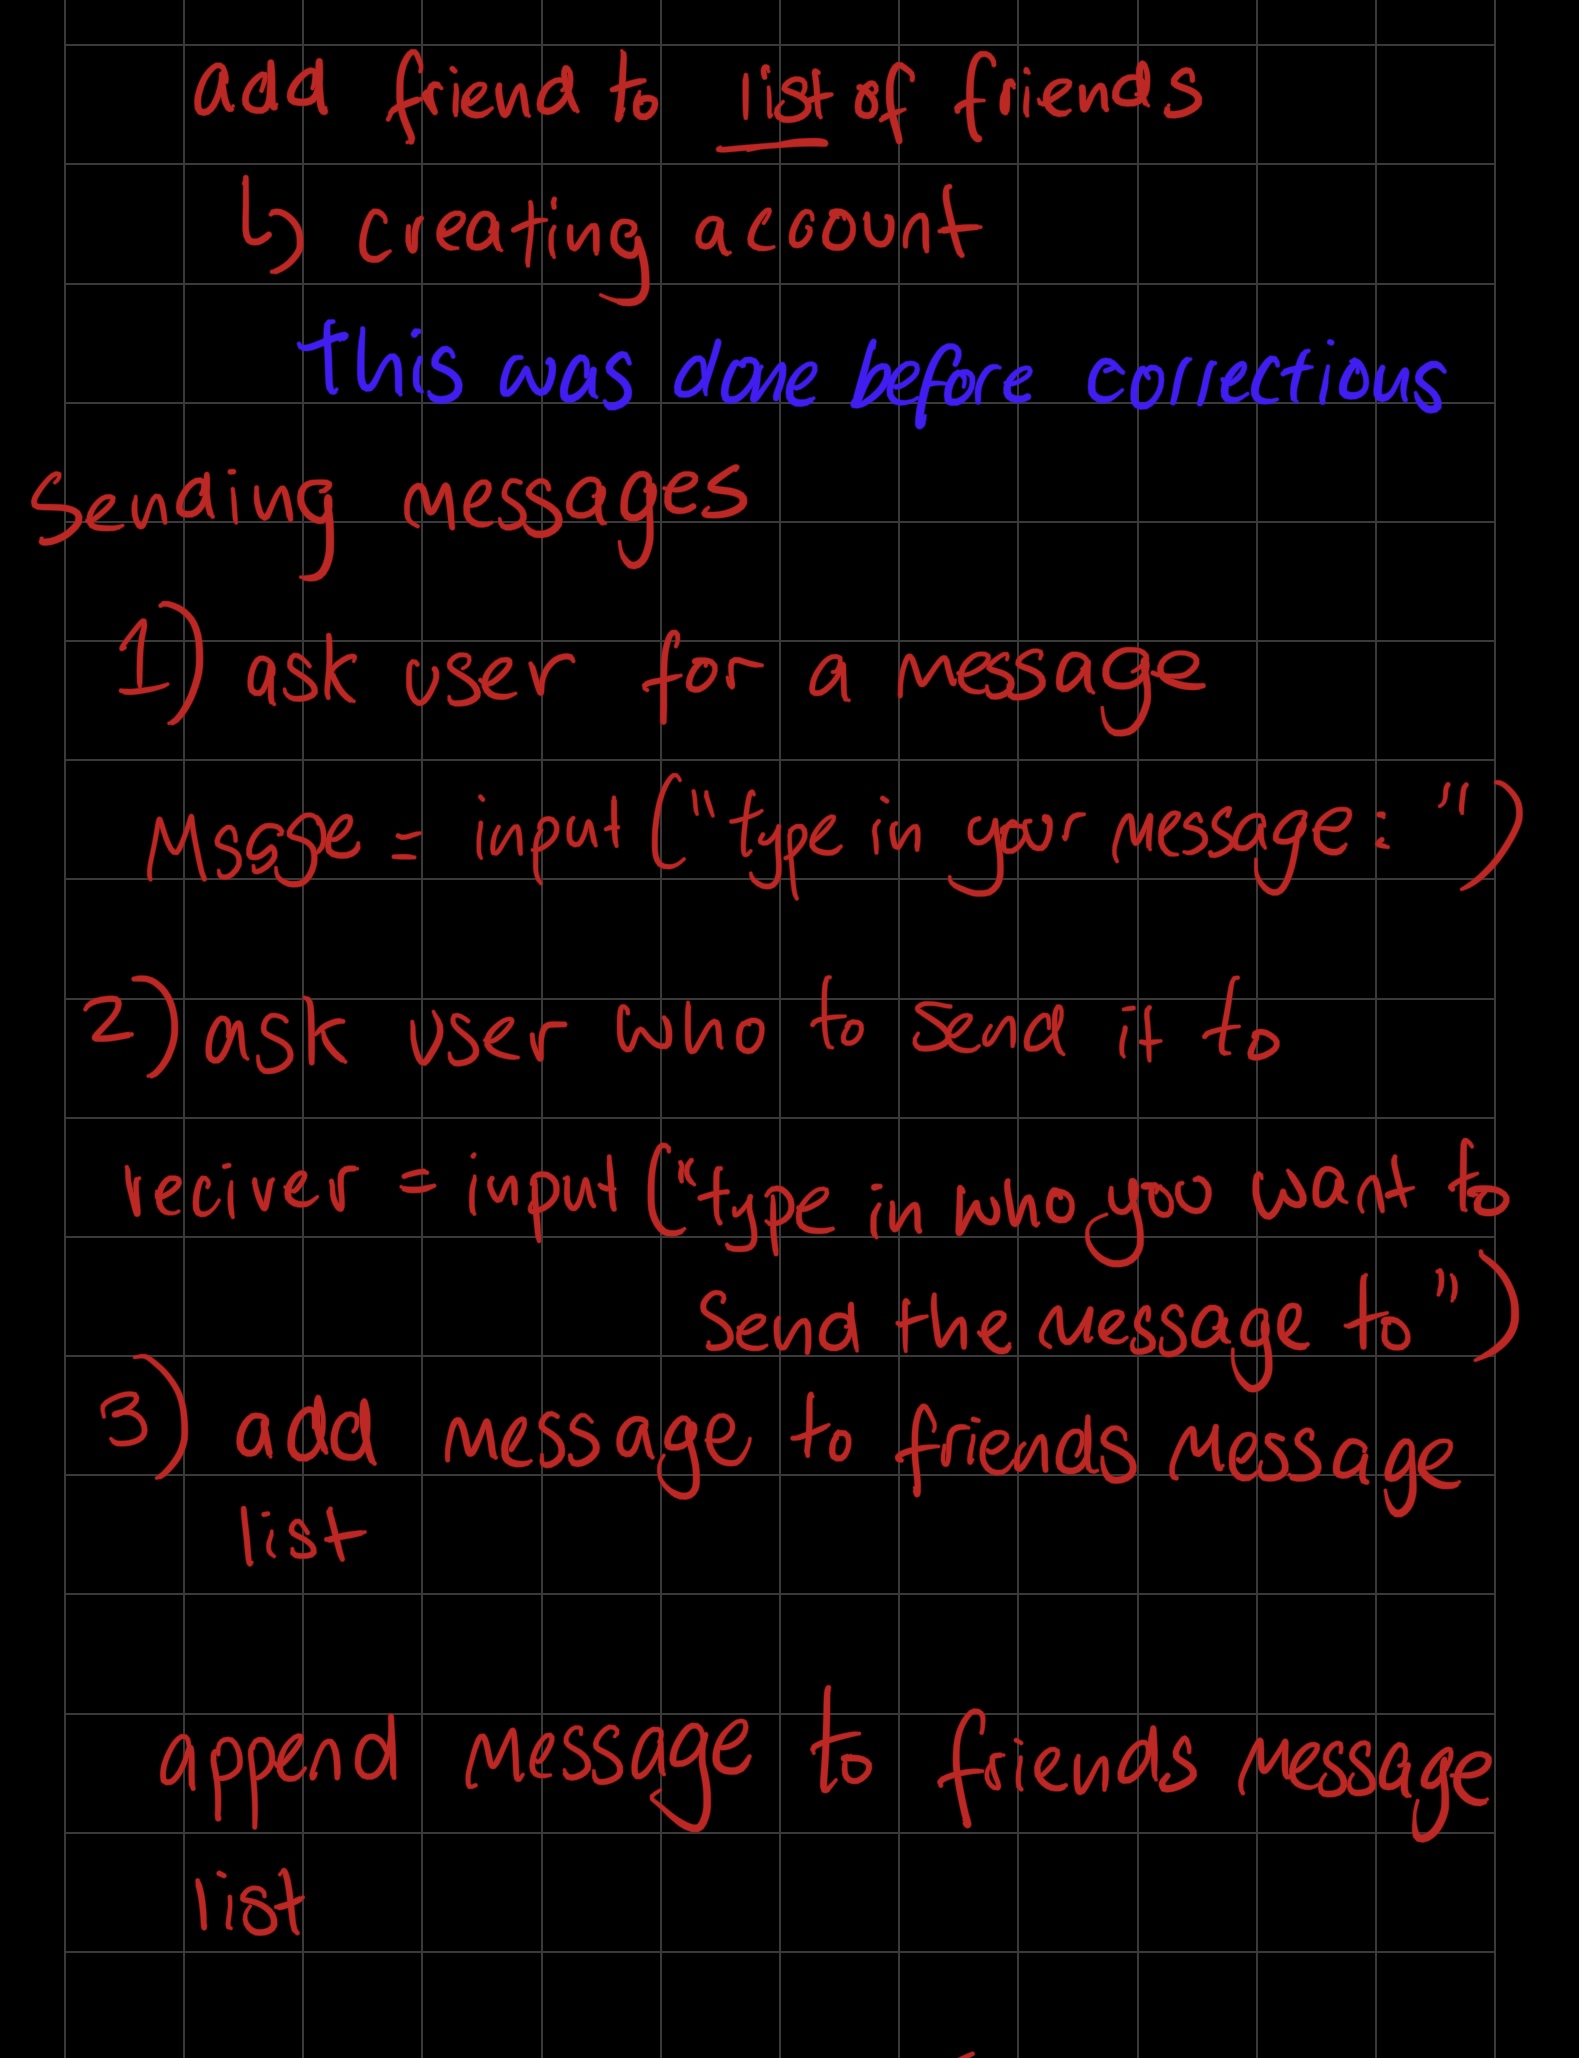 add friend to list of friends
↳ creating account
this was done before corrections
Sending messages
1) ask user for a message
Mssge = input ("type in your message: ")
2) ask user who to send it to
reciver = input ("type in who you want to
Send the message to")
3) add message to friends message
list
append message to friends message
list